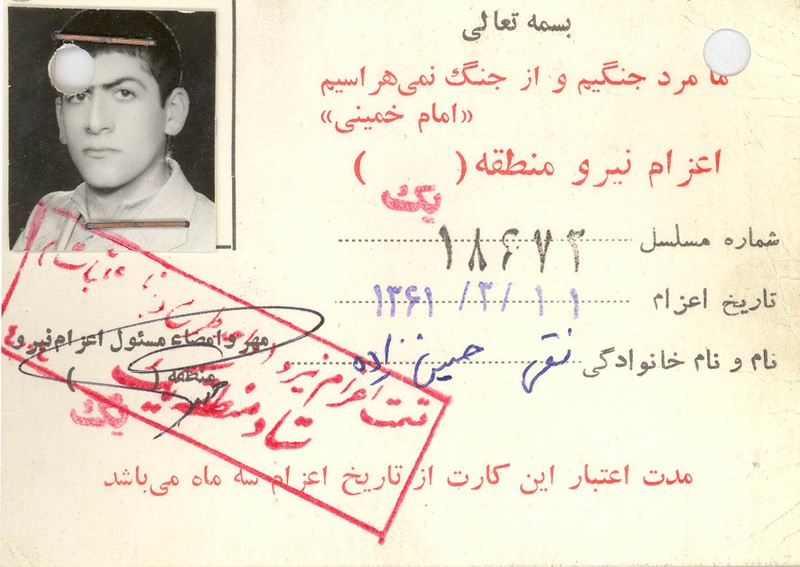 بسمه تعالی
ما مرد جنگیم و از جنگ نمی‌هراسیم
«امام خمینی»
اعزام نیرو منطقه ( )
یک
شماره مسلسل ۱۸۶۷۲
تاریخ اعزام ۱۳۶۱/۳/۱۱
نام و نام خانوادگی نقی حسین زاده
مهر و امضاء مسئول اعزام نیرو
منطقه ( )
یک
اعزام نیرو
ستاد منطقه یک
مدت اعتبار این کارت از تاریخ اعزام سه ماه می‌باشد